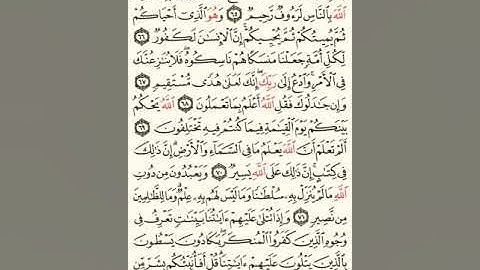 ٱللَّهَ بِٱلنَّاسِ لَرَءُوفٌ رَّحِيمٌ ٦٥ وَهُوَ ٱلَّذِىٓ أَحْيَاكُمْ
ثُمَّ يُمِيتُكُمْ ثُمَّ يُحْيِيكُمْ إِنَّ ٱلْإِنسَٰنَ لَكَفُورٌ ٦٦
لِّكُلِّ أُمَّةٍ جَعَلْنَا مَنسَكًا هُمْ نَاسِكُوهُ فَلَا يُنَٰزِعُنَّكَ
فِى ٱلْأَمْرِ وَٱدْعُ إِلَىٰ رَبِّكَ إِنَّكَ لَعَلَىٰ هُدًى مُّسْتَقِيمٍ ٦٧
وَإِن جَٰدَلُوكَ فَقُلِ ٱللَّهُ أَعْلَمُ بِمَا تَعْمَلُونَ ٦٨ ٱللَّهُ يَحْكُمُ
بَيْنَكُمْ يَوْمَ ٱلْقِيَٰمَةِ فِيمَا كُنتُمْ فِيهِ تَخْتَلِفُونَ ٦٩
أَلَمْ تَعْلَمْ أَنَّ ٱللَّهَ يَعْلَمُ مَا فِى ٱلسَّمَآءِ وَٱلْأَرْضِ إِنَّ ذَٰلِكَ
فِى كِتَٰبٍ إِنَّ ذَٰلِكَ عَلَى ٱللَّهِ يَسِيرٌ ٧٠ وَيَعْبُدُونَ مِن دُونِ
ٱللَّهِ مَا لَمْ يُنَزِّلْ بِهِۦ سُلْطَٰنًا وَمَا لَيْسَ لَهُم بِهِۦ عِلْمٌ وَمَا لِلظَّٰلِمِينَ
مِن نَّصِيرٍ ٧١ وَإِذَا تُتْلَىٰ عَلَيْهِمْ ءَايَٰتُنَا بَيِّنَٰتٍ تَعْرِفُ فِى
وُجُوهِ ٱلَّذِينَ كَفَرُوا۟ ٱلْمُنكَرَ يَكَادُونَ يَسْطُونَ
بِٱلَّذِينَ يَتْلُونَ عَلَيْهِمْ ءَايَٰتِنَا قُلْ أَفَأُنَبِّئُكُم بِشَرٍّ مِّن